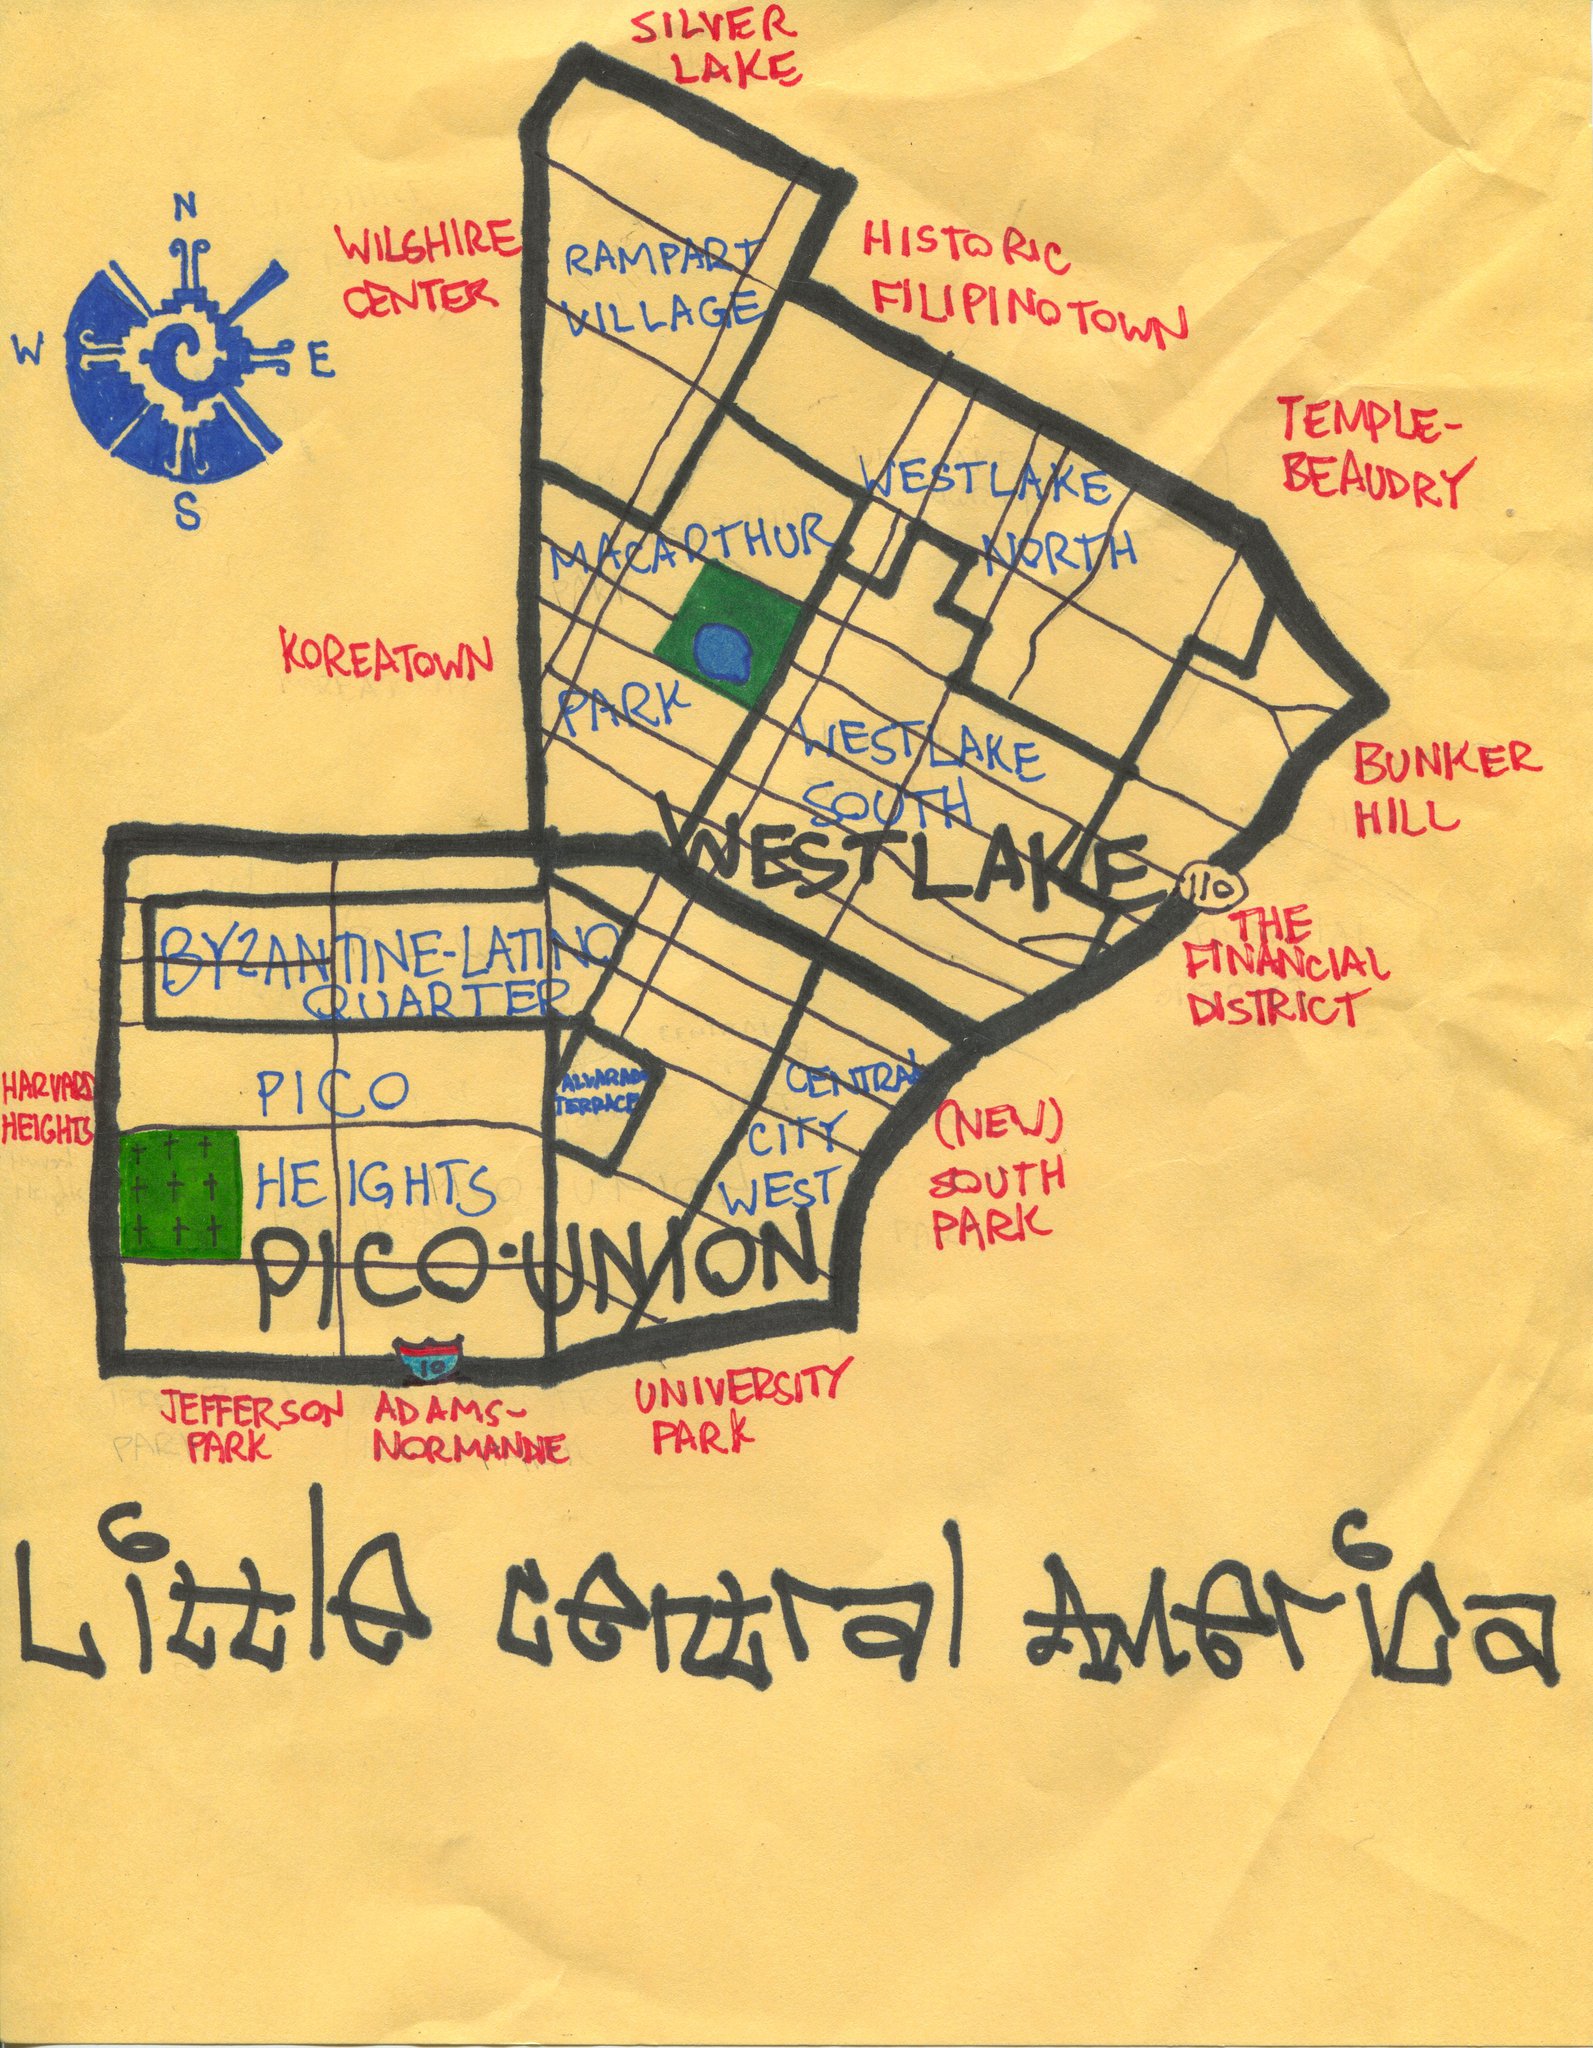 SILVER
LAKE
N
W
E
S
WILSHIRE
CENTER
HISTORIC
FILIPINOTOWN
RAMPART
VILLAGE
TEMPLE-
BEAUDRY
WESTLAKE
NORTH
MACARTHUR
PARK
KOREATOWN
WESTLAKE
SOUTH
BUNKER
HILL
WESTLAKE
110
THE
FINANCIAL
DISTRICT
BYZANTINE-LATINO
QUARTER
HARVARD
HEIGHTS
PICO
HEIGHTS
ALVARADO
TERRACE
CENTRAL
CITY
WEST
(NEW)
SOUTH
PARK
PICO-UNION
10
JEFFERSON
PARK
ADAMS-
NORMANDIE
UNIVERSITY
PARK
Little Central America